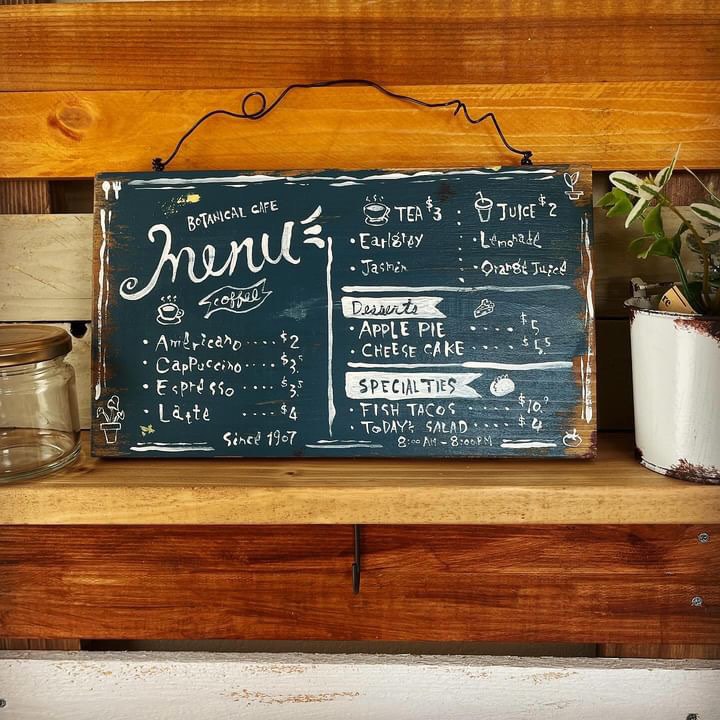 BOTANICAL CAFE
Menu
coffee
Americano ···· $2
Cappuccino ··· $3.5
Espresso ···· $3.5
Latte ···· $4
Since 1907
TEA $3
Earlgrey
Jasmin
JUICE $2
Lemonade
Orange Juice
Desserts
APPLE PIE ···· $5
CHEESE CAKE ···· $5.5
SPECIALTIES
FISH TACOS ···· $10.
TODAY'S SALAD ···· $4
8:00 AM - 8:00PM